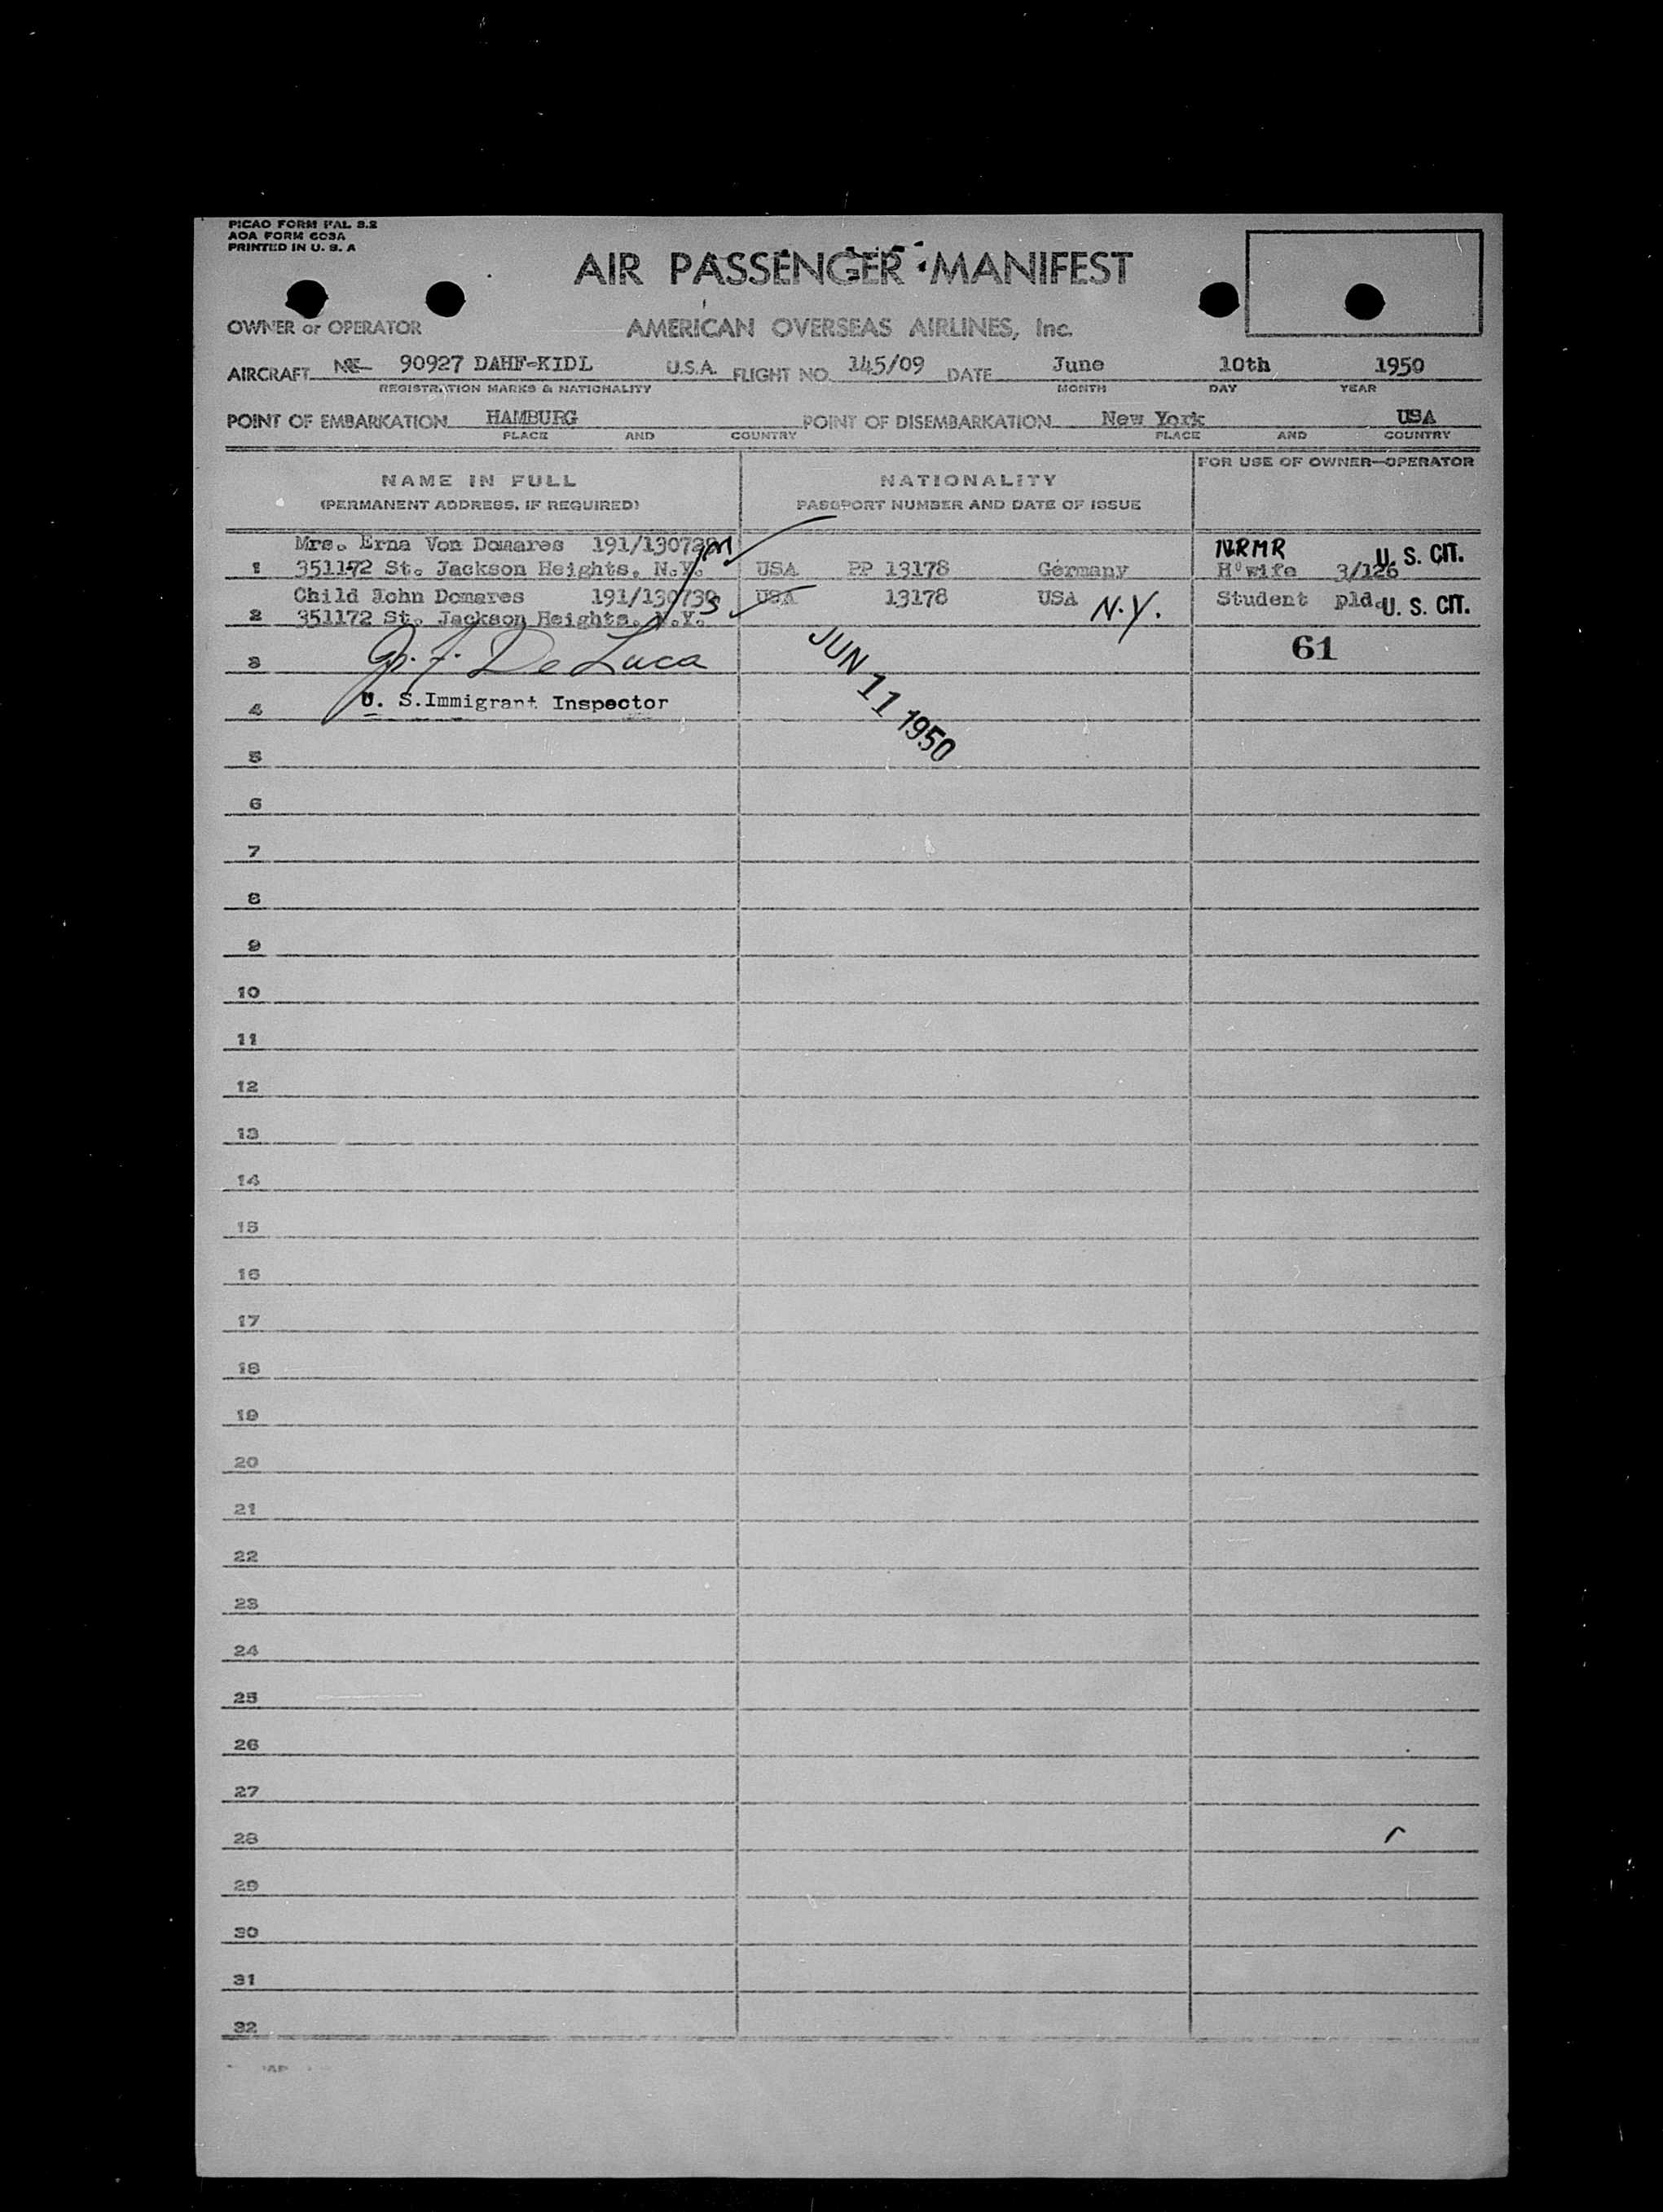 PICAO FORM PAL 3.2
AOA FORM 603A
PRINTED IN U. S. A
AIR PASSENGER MANIFEST
OWNER or OPERATOR AMERICAN OVERSEAS AIRLINES, Inc.
AIRCRAFT 90927 DAHF-KIDL U.S.A. FLIGHT NO. 145/09 DATE June 10th 1950
REGISTRATION MARKS & NATIONALITY MONTH DAY YEAR
POINT OF EMBARKATION HAMBURG POINT OF DISEMBARKATION New York USA
PLACE AND COUNTRY PLACE AND COUNTRY
NAME IN FULL NATIONALITY FOR USE OF OWNER-OPERATOR
(PERMANENT ADDRESS, IF REQUIRED) PASSPORT NUMBER AND DATE OF ISSUE
Mrs. Erna Von Domares NRMR
1 351172 St. Jackson Heights, N.Y. USA PP 13178 Germany H'wife 3/126 U. S. CIT.
Child John Domares 191/130730 USA 13178 USA N.Y. Student pld. U. S. CIT.
2 351172 St. Jackson Heights, N.Y.
3 De Luca 61
4 U. S.Immigrant Inspector
JUN 11 1950
5
6
7
8
9
10
11
12
13
14
15
16
17
18
19
20
21
22
23
24
25
26
27
28
29
30
31
32